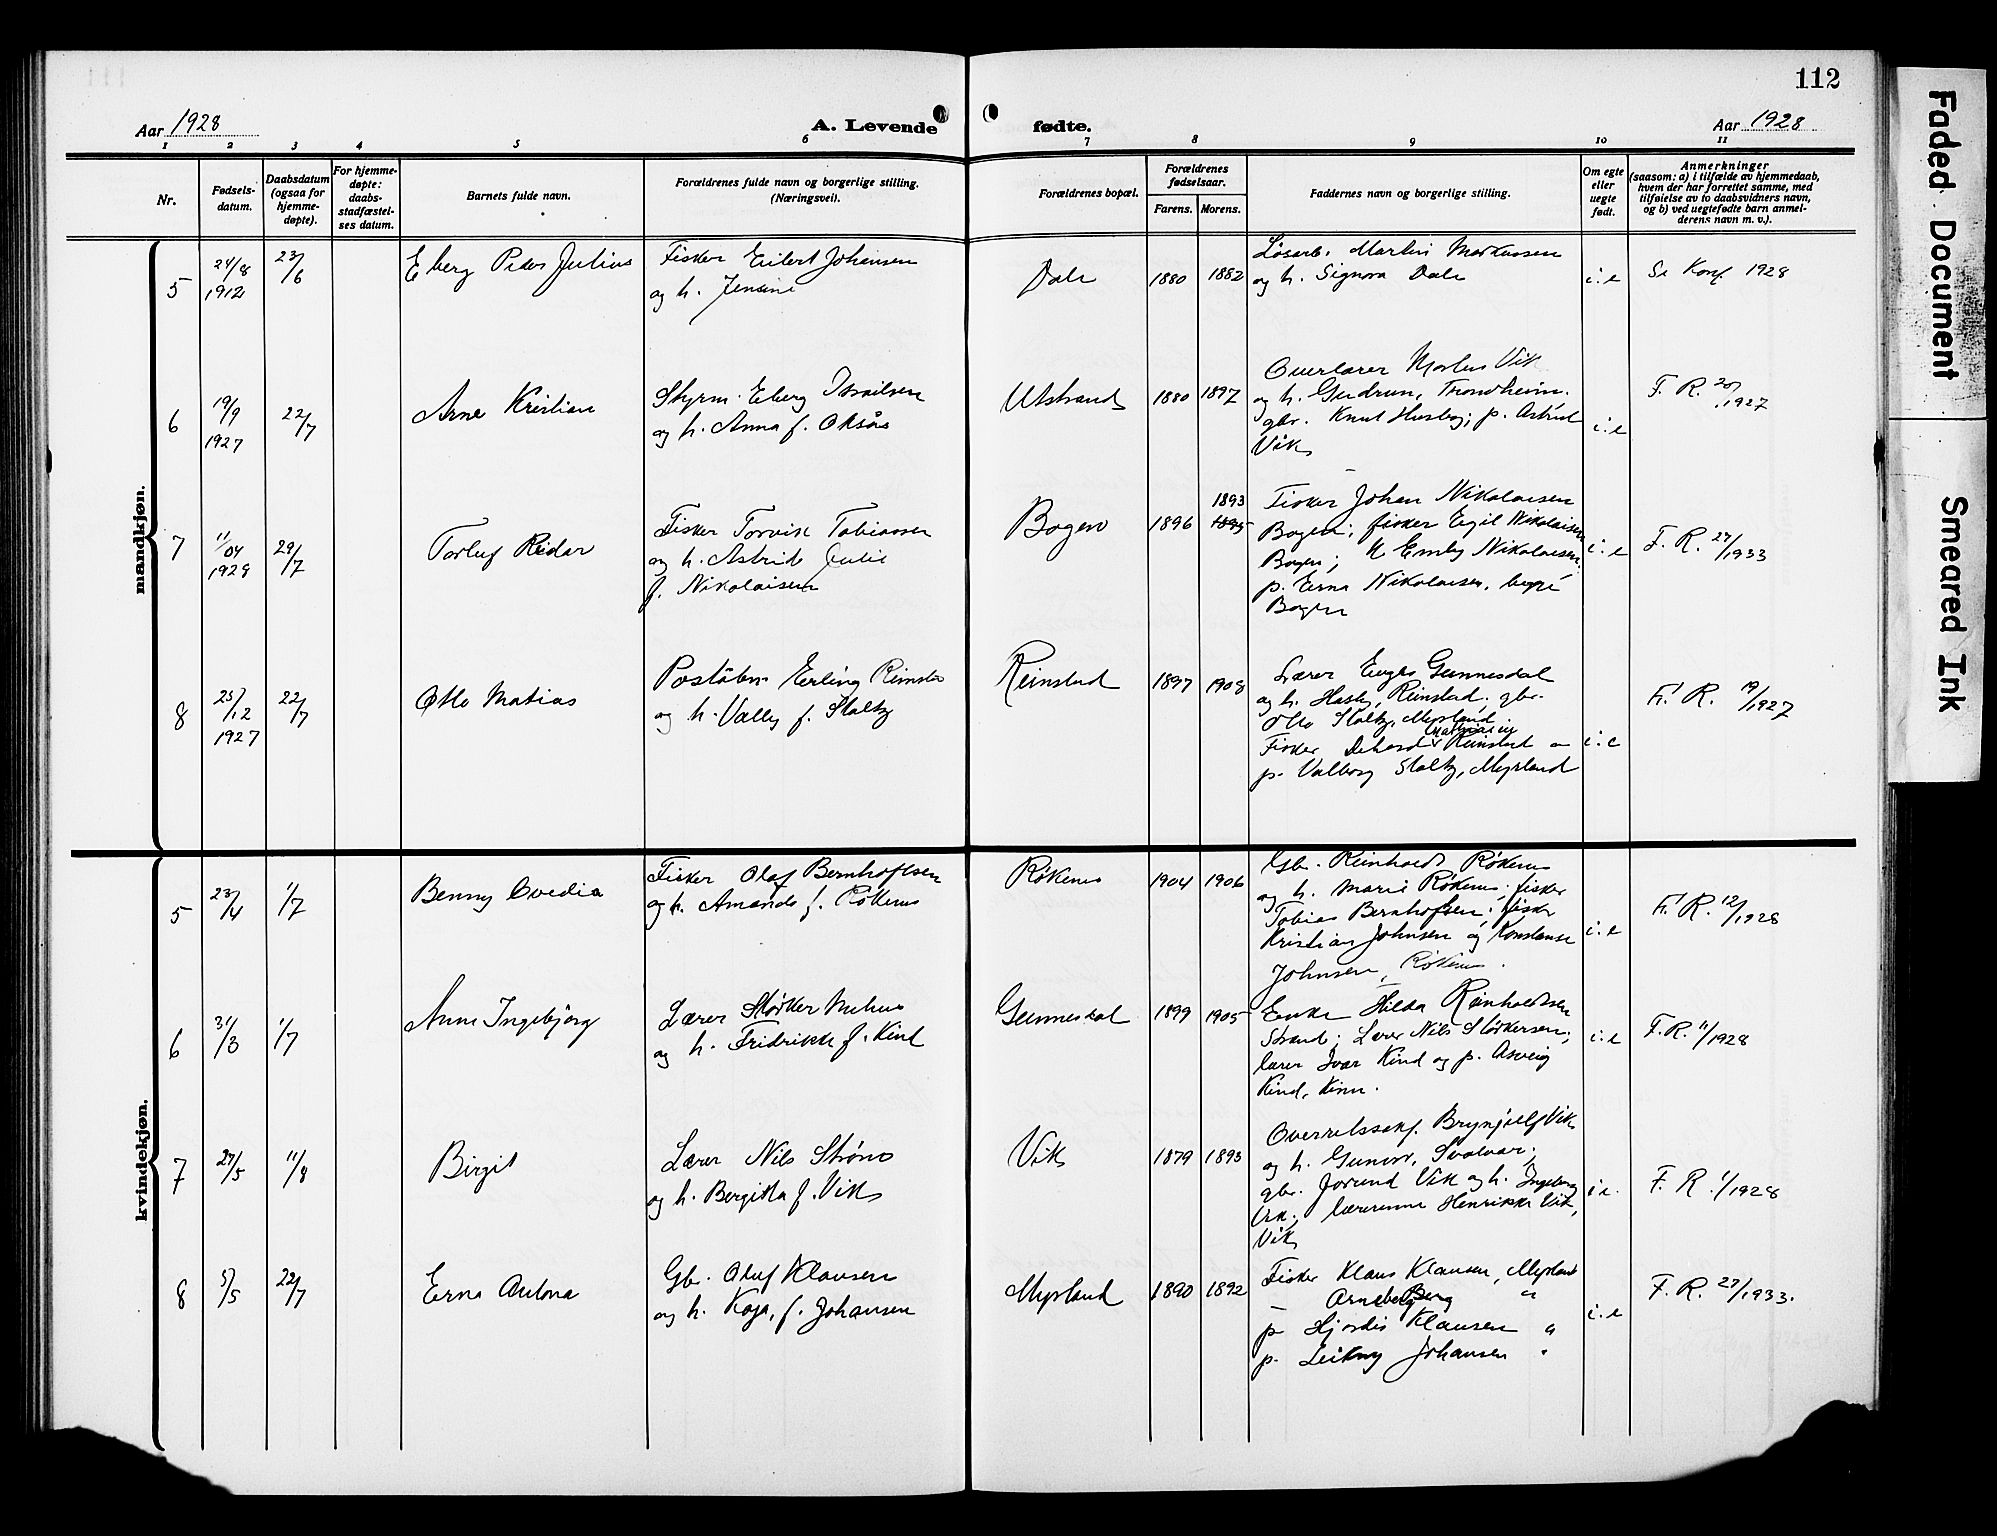 112
Aar 1928
A. Levende fødte.
Aar 1928
1 2 3 4 5 6 7 8 9 10 11
Nr.
Fødsels-
datum.
Daabsdatum
(ogsaa for
hjemme-
døpte).
For hjemme-
døpte:
daabs-
stadfæstel-
ses datum.
Barnets fulde navn.
Forældrenes fulde navn og borgerlige stilling.
(Næringsvei).
Forældrenes bopæl.
Forældrenes
fødselsaar.
Farens. Morens.
Faddernes navn og borgerlige stilling.
Om egte
eller
uegte
født.
Anmerkninger
(saasom: a) i tilfælde av hjemmedaab,
hvem der har forrettet samme, med
tilføielse av to daabsvidners navn,
og b) ved uegtefødte barn anmel-
derens navn m. v.).
mandkjøn.
5
24/8
1912
23/6
Eberg Peder Julius
Fisker Eilert Johansen
og h. Jensine
Dale
1880 1882
Løsarb. Martin Markussen
og h. Signora Dale
i.e
Se Konf. 1928
6
19/9
1927
22/7
Arne Kristian
Styrm. Eberg Israilsen
og h. Anna f. Oksås
Utstrand
1880 1897
Overlærer Morten Vik
og h. Gudrun, Trondheim.
gbr. Knut Husby; p. Astrid
Vik
i.e
F. R. 20/1927
7
11/04
1928
29/7
Torluf Reidar
Fisker Torvik Tobiassen
og h. Astrid Julie
f. Nikolaisen
Bogen
1896
1893
1895
Fisker Johan Nikolaisen
Bogen; fisker Egil Nikolaisen
Bogen; Emly Nikolaisen.
p. Erna Nikolaisen, begge
Bogen
i.e
F. R. 27/1933
8
25/12
1927
22/7
Otto Matias
Poståbn. Erling Reinstad
og h. Vally f. Stoltz
Reinstad
1897 1908
Lærer Gunnesdal
og h. Reinstad, gbr.
Otto Stoltz, Myrland
Fisker Reinstad
p. Valborg Stoltz, Myrland
i.e
F. R. 19/1927
kvindekjøn.
5
23/4
1/7
Benny Ovedia
Fisker Olaf Bernhoftsen
og h. Amanda f. Røkenes
Røkenes
1904 1906
Gbr. Reinholdt Røkenes
og h. Marie Røkenes; fisker
Tobias Bernhoftsen; fisker
Kristian Johnsen og Konstanse
Johnsen, Røkenes.
i.e
F. R. 12/1928
6
31/3
1/7
Anne Ingebjørg
Lærer Størker Melhus
og h. Fridrikke f. Kind
Gunnesdal
1899 1905
Enke Hilda Reinholdtsen
Strand; Lærer Nils Størkersen;
lærer Ivar Kind og p. Asveig
Kind, Kinn.
i.e
F. R. 11/1928
7
27/5
11/8
Birgit
Lærer Nils Strøno
og h. Bergitta f. Vik
Vik
1879 1893
Overretssakf. Brynjulf Vik
og h. Gunvor, Svolvær;
gbr. Jorund Vik og h. Ingeborg
Vik; lærerinne Henrikke Vik,
Vik
i.e.
F. R. 1/1928
8
5/5
22/7
Erna Antona
Gbr. Oluf Klausen
og h. Kaja, f. Johansen
Myrland
1890 1892
Fisker Klaus Klausen, Myrland
— Arneberg Berg "
p. Hjordis Klausen "
p. Leikny Johansen "
i.e
F. R. 27/1933.
Faded Document
Smeared Ink